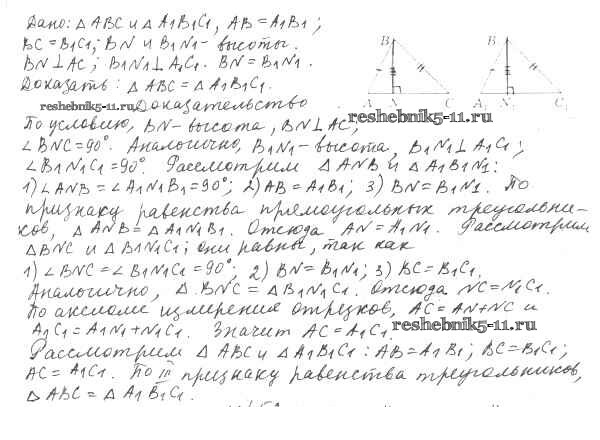 Дано: △ABC и △A1B1C1, AB=A1B1;
BC=B1C1; BN и B1N1- высоты.
BN⊥AC; B1N1⊥A1C1. BN=B1N1.
Доказать: △ABC=△A1B1C1.
reshebnik5-11.ru Доказательство
По условию, BN-высота, BN⊥AC,
∠BNC=90°. Аналогично, B1N1-высота, B1N1⊥A1C1;
∠B1N1C1=90°. Рассмотрим △ANB и △A1B1N1:
1)∠ANB=∠A1N1B1=90°; 2)AB=A1B1; 3) BN=B1N1. По
признаку равенства прямоугольных треугольни-
ков, △ANB=△A1N1B1. Отсюда AN=A1N1. Рассмотрим
△BNC и △B1N1C1; они равны, так как
1) ∠BNC=∠B1N1C1=90°; 2) BN=B1N1; 3) BC=B1C1.
Аналогично, △.BNC=△B1N1C1. Отсюда NC=N1C1.
По аксиоме измерения отрезков, AC=AN+NC и
A1C1=A1N1+N1C1. Значит AC=A1C1.
Рассмотрим △ABC и △A1B1C1: AB=A1B1; BC=B1C1;
AC=A1C1. По III признаку равенства треугольников,
△ABC=△A1B1C1.
B
A N C
B1
A1 N1 C1
reshebnik5-11.ru
reshebnik5-11.ru